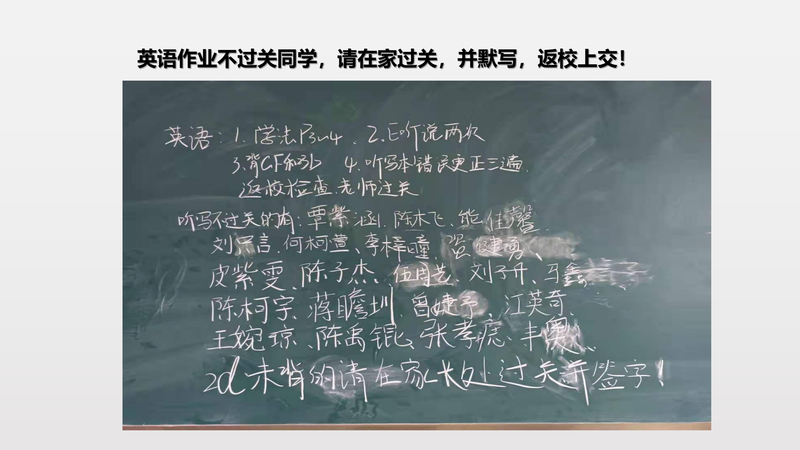 英语作业不过关同学，请在家过关，并默写，返校上交！
英语：1.学法P3~4、2.E听说两次
3.背CF和3b 4.听写本错误更正三遍.
返校检查.老师过关
听写不过关的有：覃紫涵、陈木飞、熊佳馨
刘宗言、何柯萱、李梓瞳、
皮紫雯、陈子杰、伍周芫、刘子丹、马鑫
陈柯宇、蒋瞻圳、曾婕予、江英奇、
王婉琼、陈禹锟、张孝宸、丰奥、
2d未背的请在家长处过关并签字！